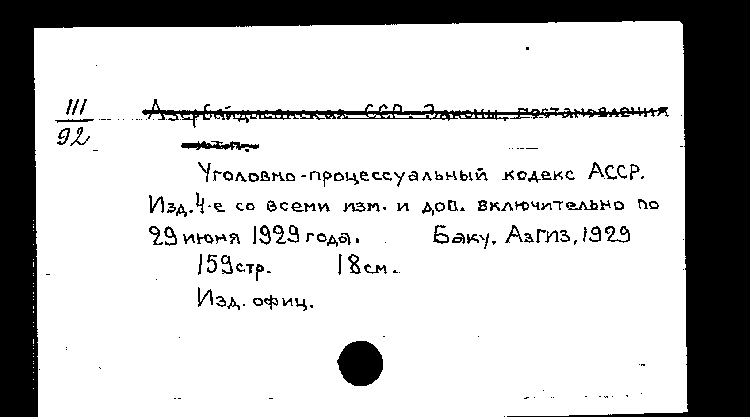 III
92
Азербайджанская ССР. Законы, постановления
Уголовно-процессуальный кодекс АССР.
Изд. 4-е со всеми изм. и доп. включительно по
29 июня 1929 года. Баку, Азгиз, 1929
159 стр. 18 см.
Изд. офиц.